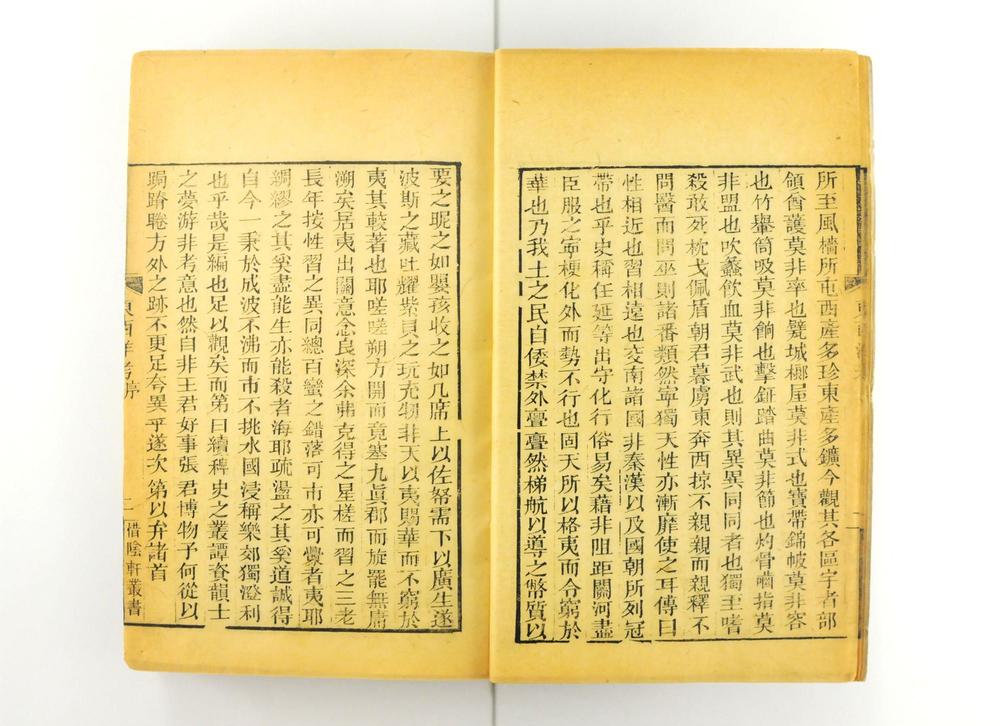 所至風檣所屯西產多珍東產多鑛今觀其各區字者部
領酋護莫非率也甓城槨屋莫非式也寶帶錦帔莫非容
也竹轝筒吸莫非餉也擊鉦踏曲莫非節也灼骨嚙指莫
非盟也吹蠡飲血莫非武也則其異異同同者也獨至嗜
殺敢死枕戈佩盾朝君暮虜東奔西掠不親親而親釋不
問醫而問巫則諸番類然寧獨天性亦漸靡使之耳傳曰
性相近也習相遠也交南諸國非秦漢以及國朝所列冠
帶也乎史稱任延等出守化行俗易矣藉非阻距關河盡
臣服之寧梗化外而勢不行也固天所以格夷而令窮於
華也乃我土之民自倭禁外亹亹然梯航以導之幣質以
要之昵之如嬰孩收之如几席上以佐帑需下以廣生遂
波斯之藏吐耀紫貝之玩充牣非天以夷賜華而不窮於
夷其較著也耶嗟嗟朔方開而竟塞九眞郡而旋罷無庸
溯矣居夷出關意念良深余弗克得之星槎而習之三老
長年按性習之異同總百蠻之錯落可市亦可釁者夷耶
綢繆之其奚盡能生亦能殺者海耶疏盪之其奚道誠得
自今一秉於成波不沸而市不挑水國浸稱樂郊獨澄利
也乎哉是編也足以觀矣而第曰續稗史之叢譚資韻士
之夢游非考意也然自非王君好事張君博物予何從以
跼蹐穃方外之跡不更足夸異乎遂次第以弁諸首
東西洋考序
二
惜陰軒叢書